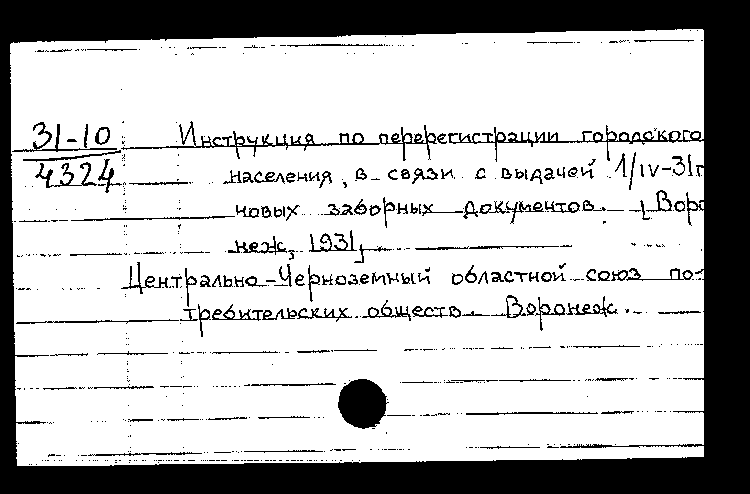 31-10
4324
Инструкция по перерегистрации городского
населения, в связи с выдачей 1/IV-31г
новых заборных документов. [Воро
неж, 1931].
Центрально-Черноземный областной союз по-
требительских обществ. Воронеж.